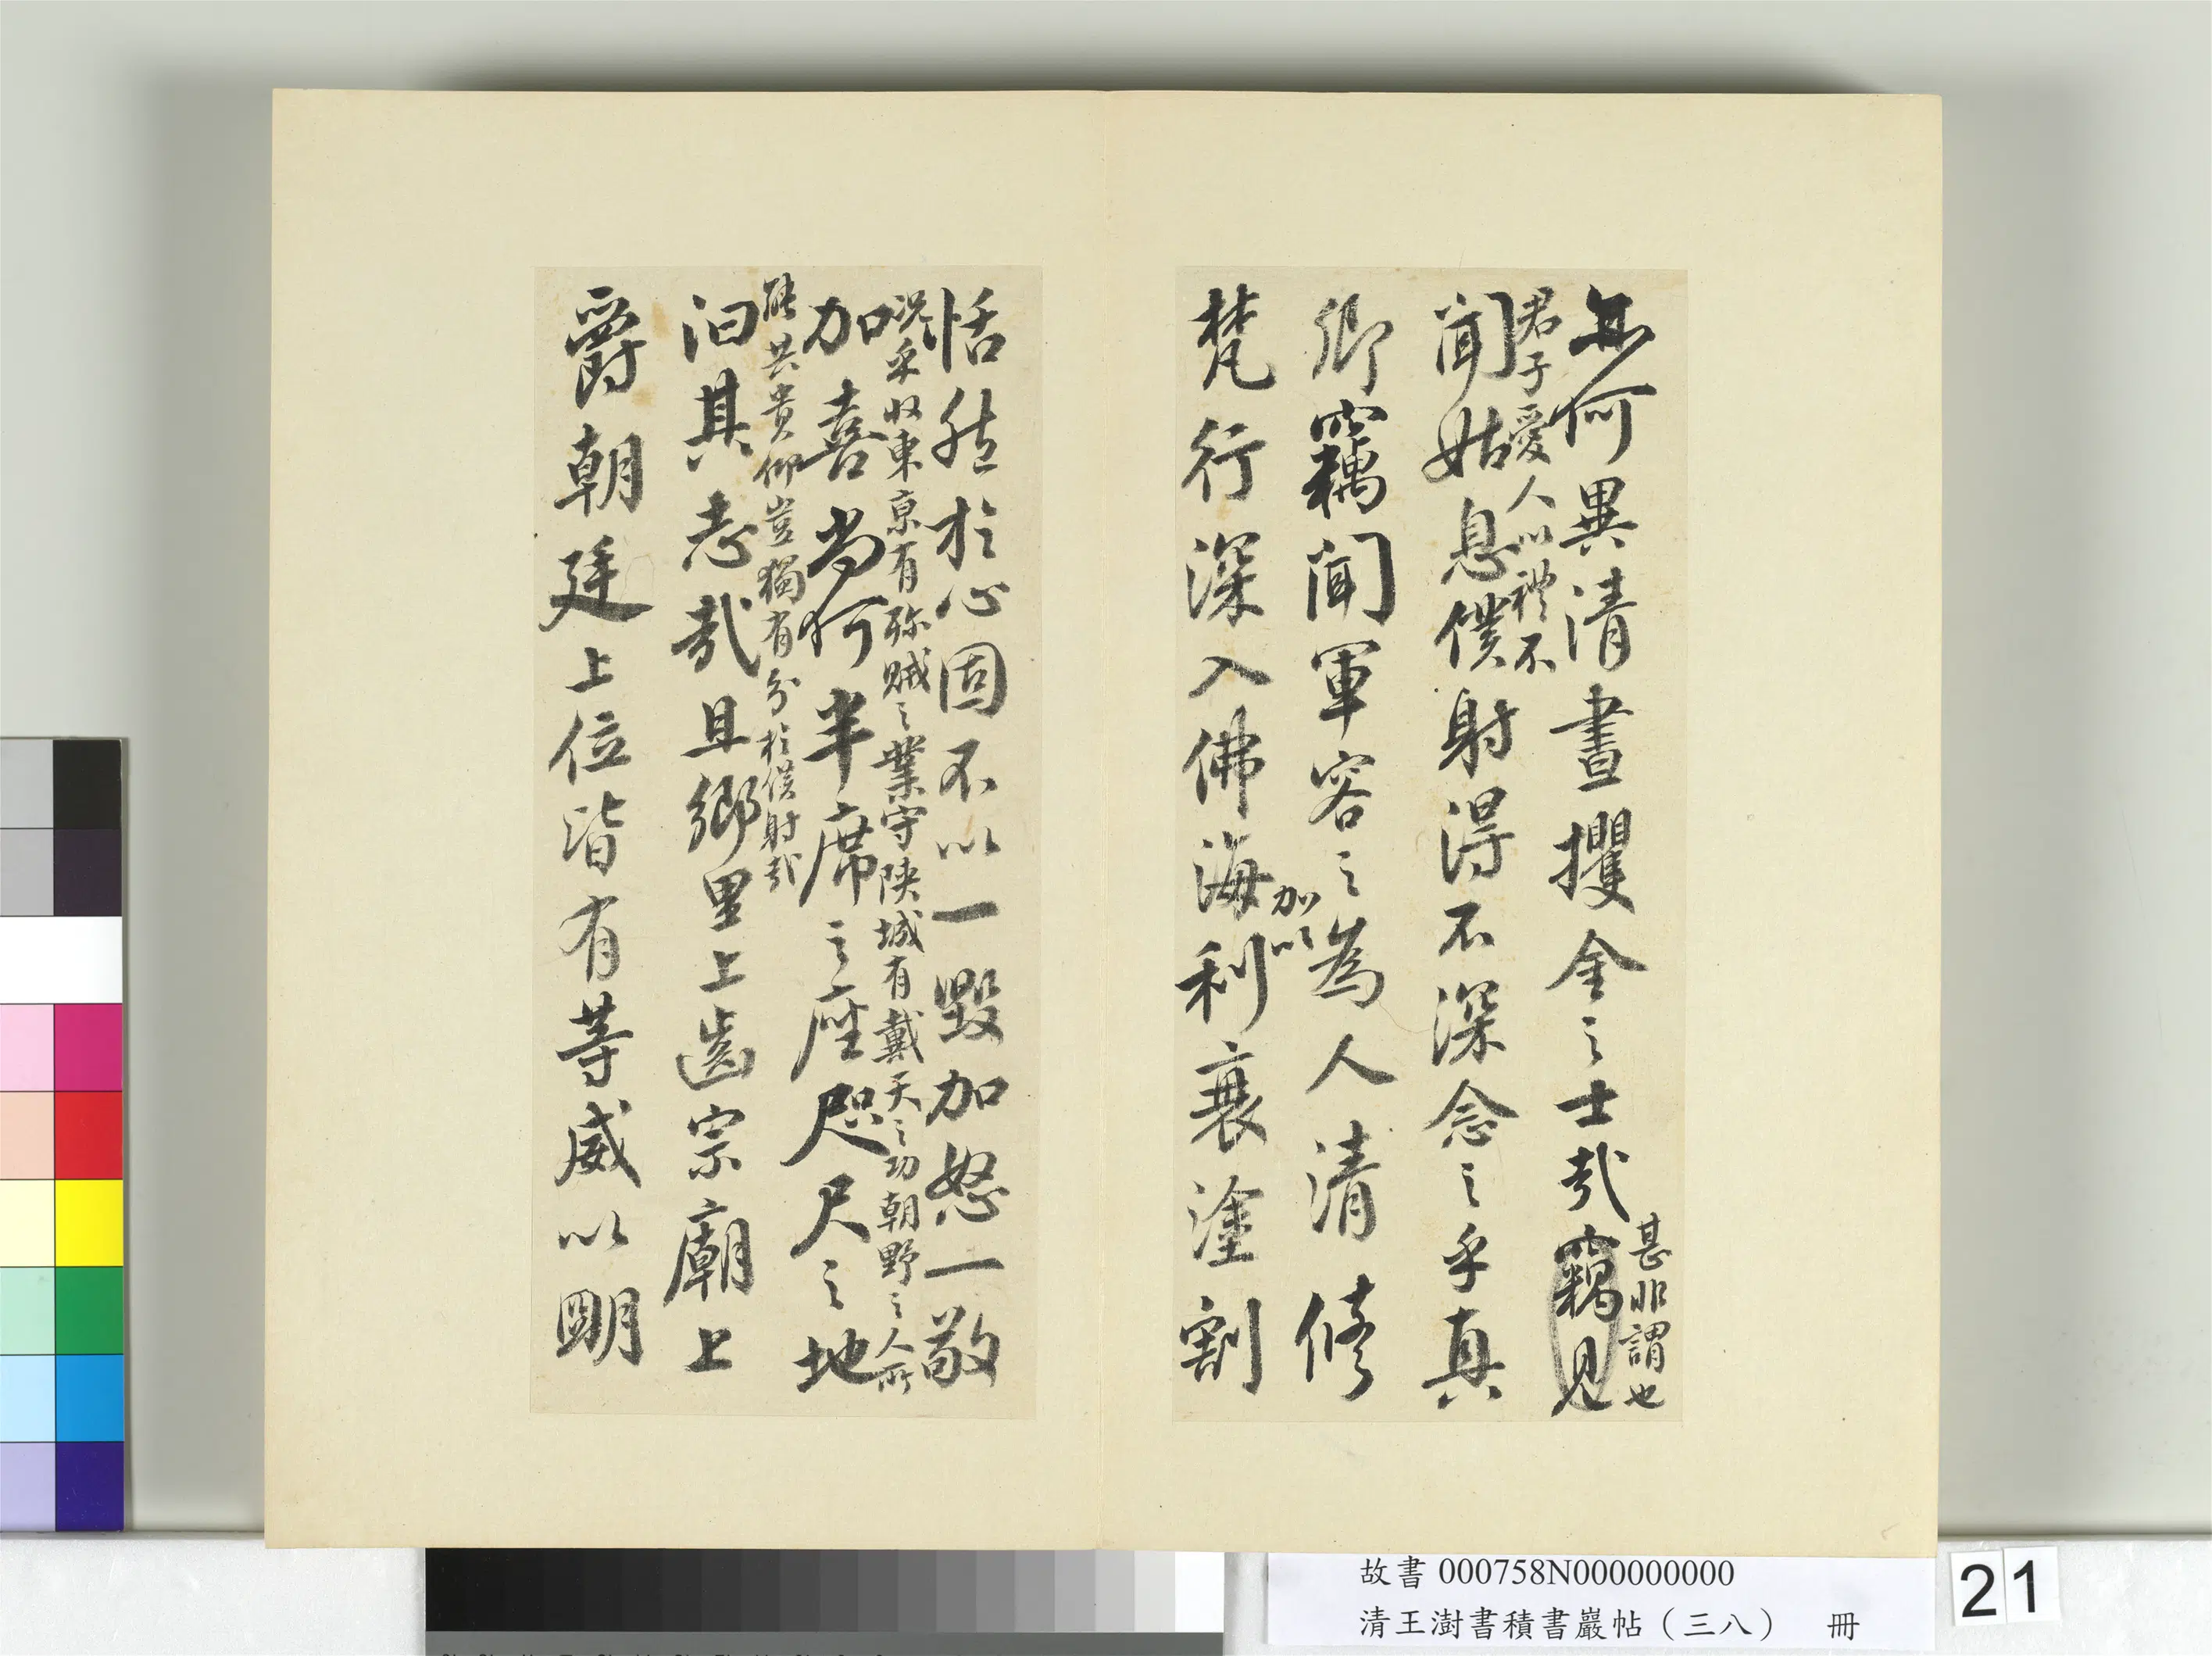 無何異清晝攫金之士哉竊見
甚非謂也
君子愛人以禮不
聞姑息僕射得不深念之乎真
卿竊聞軍容之為人清修
加以
梵行深入佛海利衰塗割
恬然於心固不以一毀加怒一敬
況乎收東京有殄賊之業守陝城有戴天之功朝野之人所
加喜尚何半席之座咫尺之地
能共貴仰豈獨有分於僕射哉
汩其志哉且鄉里上齒宗廟上
爵朝廷上位皆有等威以明
故書 000758N000000000
清王澍書積書巖帖（三八） 冊
21